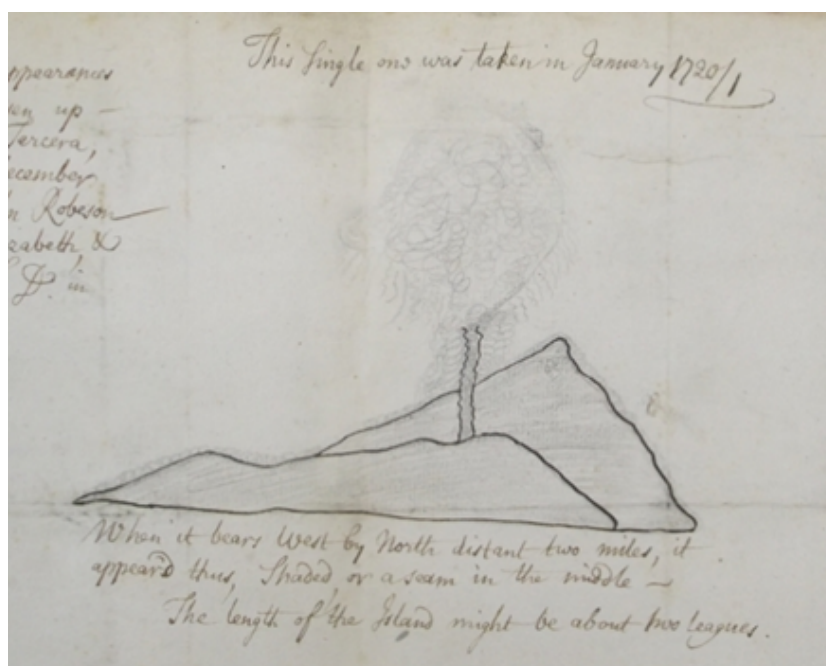 This Single one was taken in January 1720/1
ppearances
en up —
Tercera,
ecember
n Robeson
zabeth, &
D. in
When it bears West by North distant two miles, it
appear'd thus, Shaded, or a seam in the middle —
The length of the Island might be about two leagues.